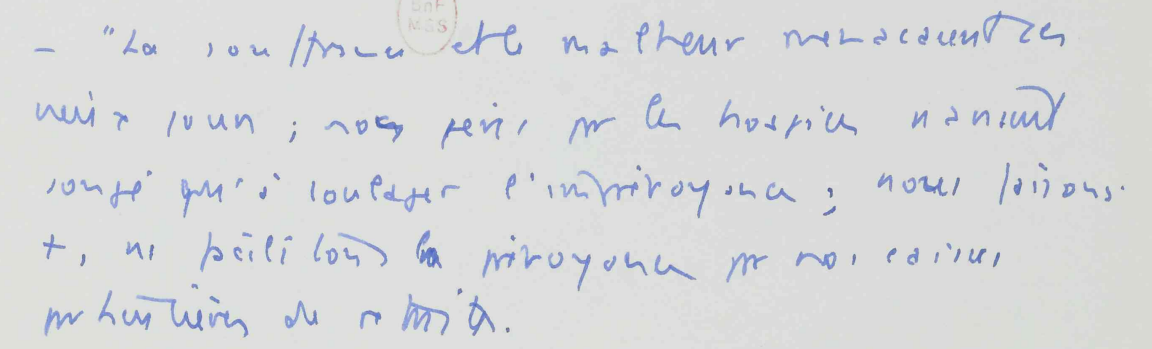 BnF
MSS
– "La souffrance et le malheur menacaient les
vieux jours ; nos pères pr les hospices n'avaient
songé qu'à soulager l'imprévoyance ; nous faisons
+, ns facilitons la prévoyance pr nos caisses
de retraite.